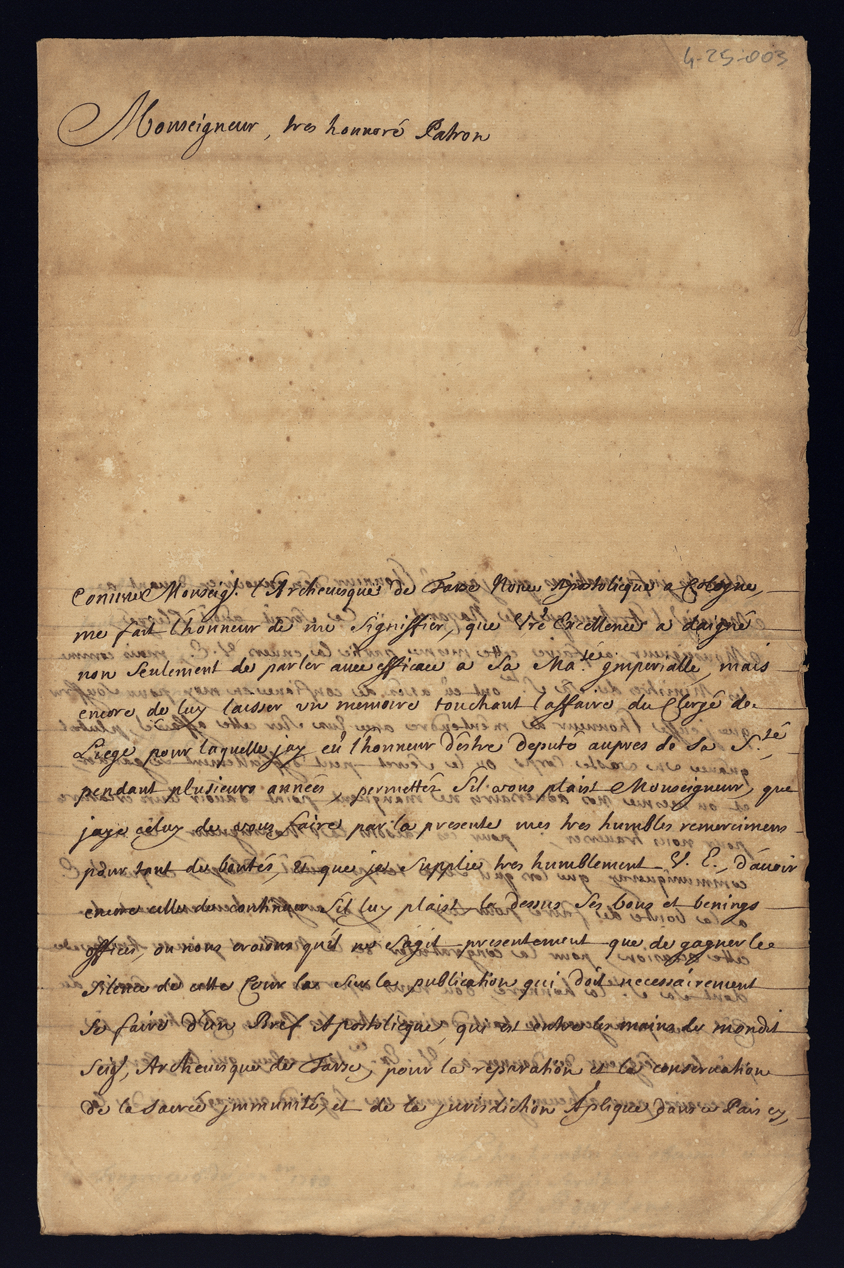 4-25-003
Monseigneur, tres honnoré Patron
Comme Monseig.r l'Archeuesque de Tarse Nonce Apostolicque a Cologne,
me fait l'honneur de me signiffier, que Vre Excellence a daigné
non seulement de parler auec efficace a Sa Ma.té jmperialle, mais
encore de luy laisser vn memoire touchant l'affaire du Clergé de
Liege pour laquelle j'ay eû l'honneur d'estre deputé aupres de Sa S.teté
pendant plusieurs années, permettés s'il vous plaist Monseigneur, que
j'aye celuy de vous faire par la presente mes tres humbles remercimens
pour tant de bontés, et que je supplie tres humblement V. E., d'auoir
encore celle de continuer s'il luy plaist la dessus ses bons et benings
offices, ou nous croions qu'il ne s'agit presentement que de gagner le
silence de cette Cour la sur la publication qui doit necessairement
se faire d'un Bref Apostolicque, qui est entre les mains de mondit
Seig.r, Archeuesque de Tarse, pour la reparation et la conservation
de la sacrée jmmunité, et de la jurisdiction Aplique dans ce Pais cy,